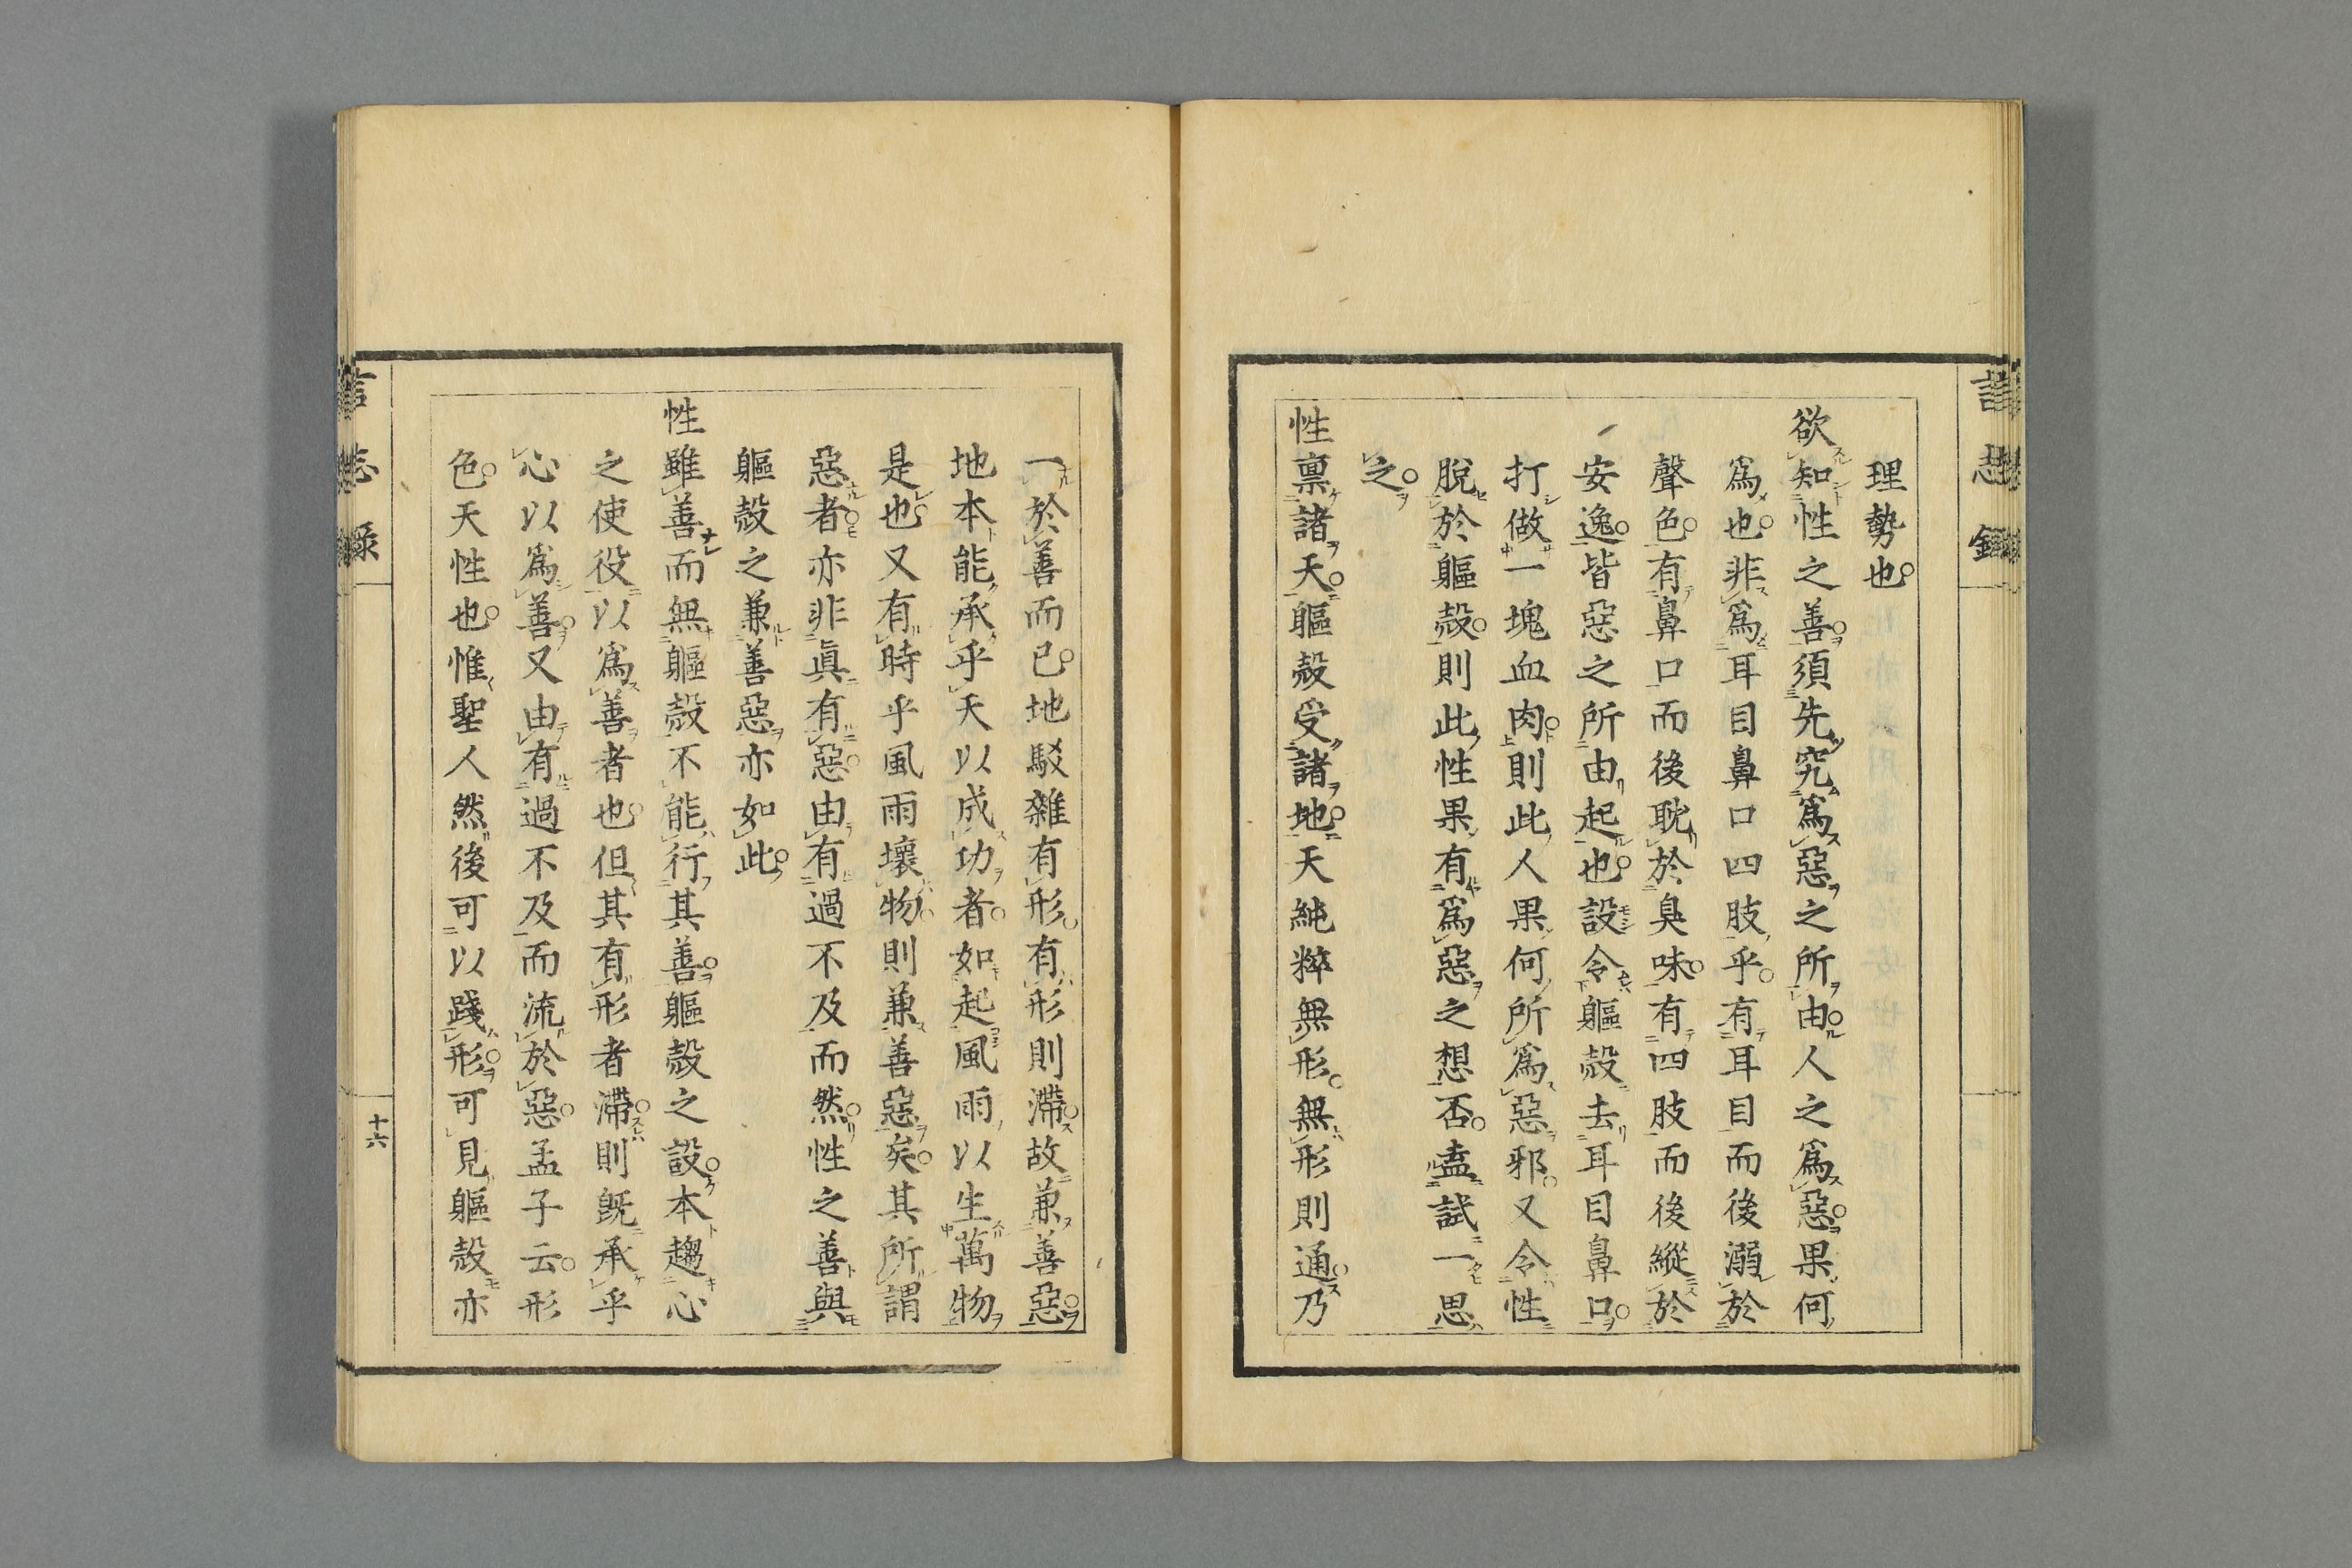 言志錄
理勢也
欲知性之善須先究爲惡之所由人之爲惡果何
爲也非爲耳目鼻口四肢乎有耳目而後溺於
聲色有鼻口而後耽於臭味有四肢而後縱於
安逸皆惡之所由起也設令軀殼去耳目鼻口
打做一塊血肉則此人果何所爲惡邪又令性
脫於軀殼則此性果有爲惡之想否盍試一思
之
性禀諸天軀殼受諸地天純粹無形無形則通乃
一於善而已地駁雜有形有形則滯故兼善惡
地本能承乎天以成功者如起風雨以生萬物
是也又有時乎風雨壞物則兼善惡矣其所謂
惡者亦非眞有惡由有過不及而然性之善與
軀殼之兼善惡亦如此
性雖善而無軀殼不能行其善軀殼之設本趨心
之使役以爲善者也但其有形者滯則旣承乎
心以爲善又由有過不及而流於惡孟子云形
色天性也惟聖人然後可以踐形可見軀殼亦
言志錄
十六